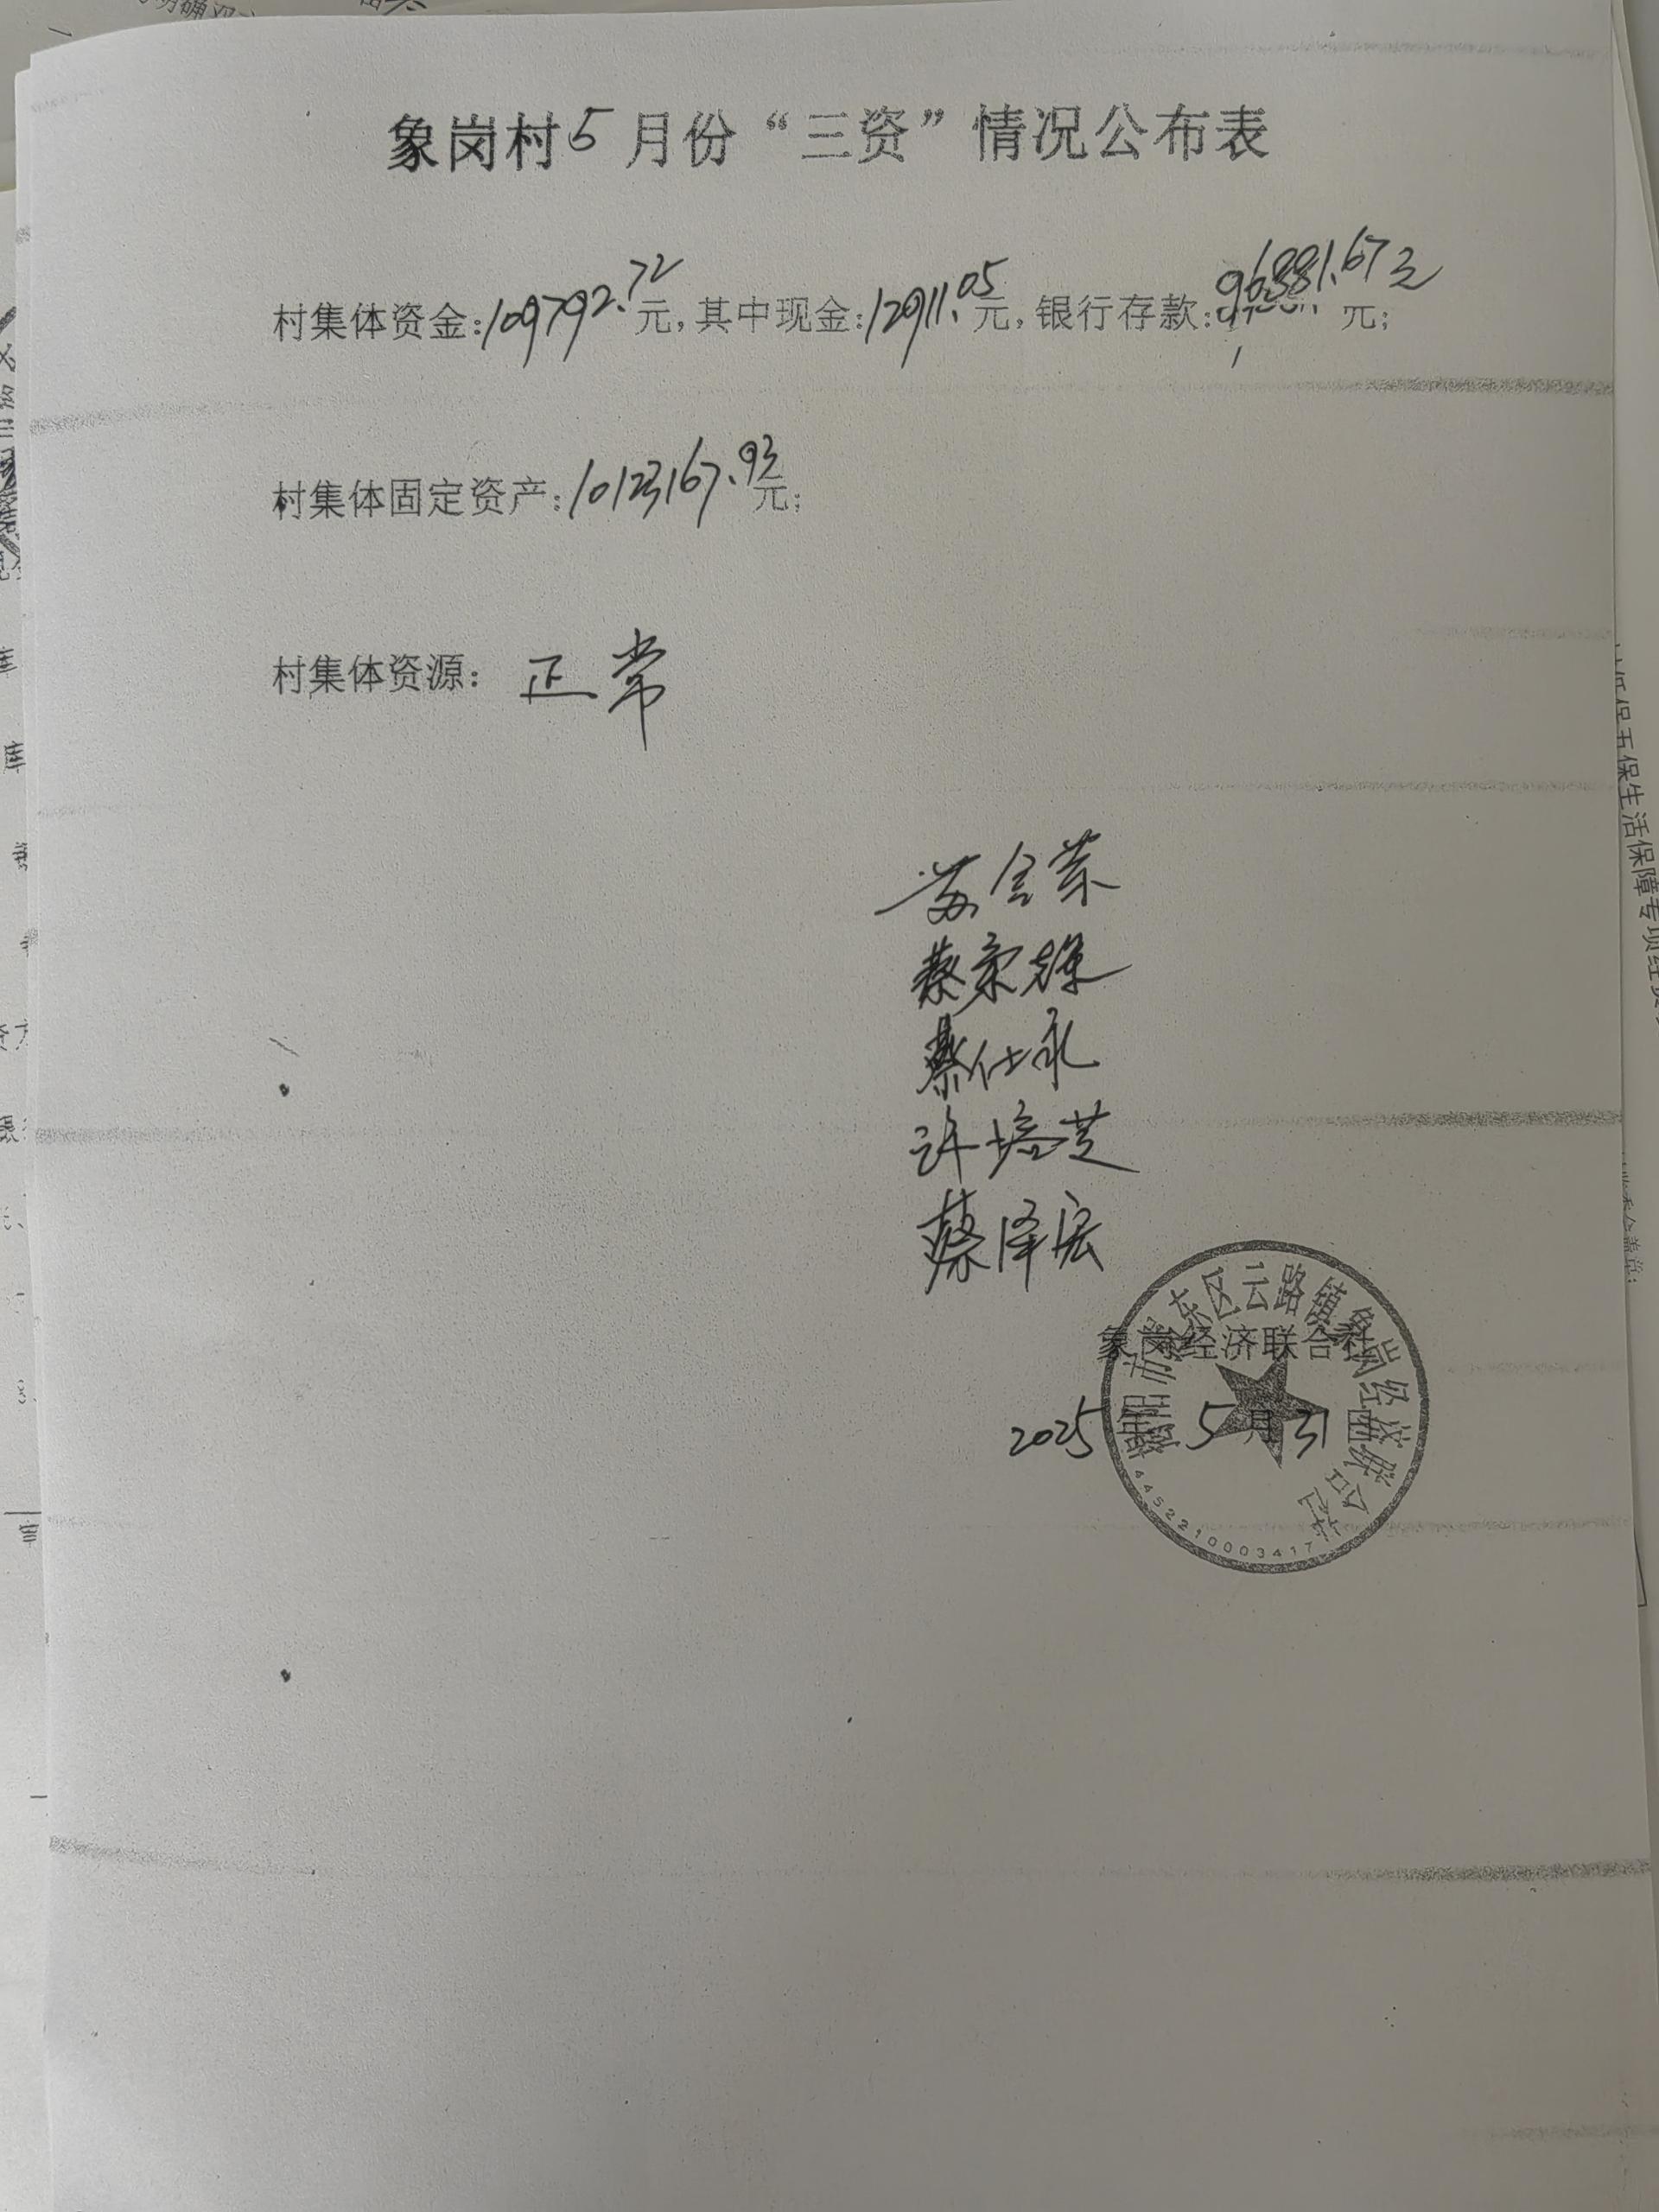 象岗村5月份“三资”情况公布表
村集体资金:109792.72元,其中现金:12911.05元,银行存款:96881.67元 元;
村集体固定资产:10123167.93元;
村集体资源:正常
苏金荣
蔡宗雄
蔡仕永
许培芝
蔡泽宏
象岗经济联合社
2025年5月31日
揭阳市揭东区云路镇象岗经济联合社
4452210003417
低保五保生活保障专项经费